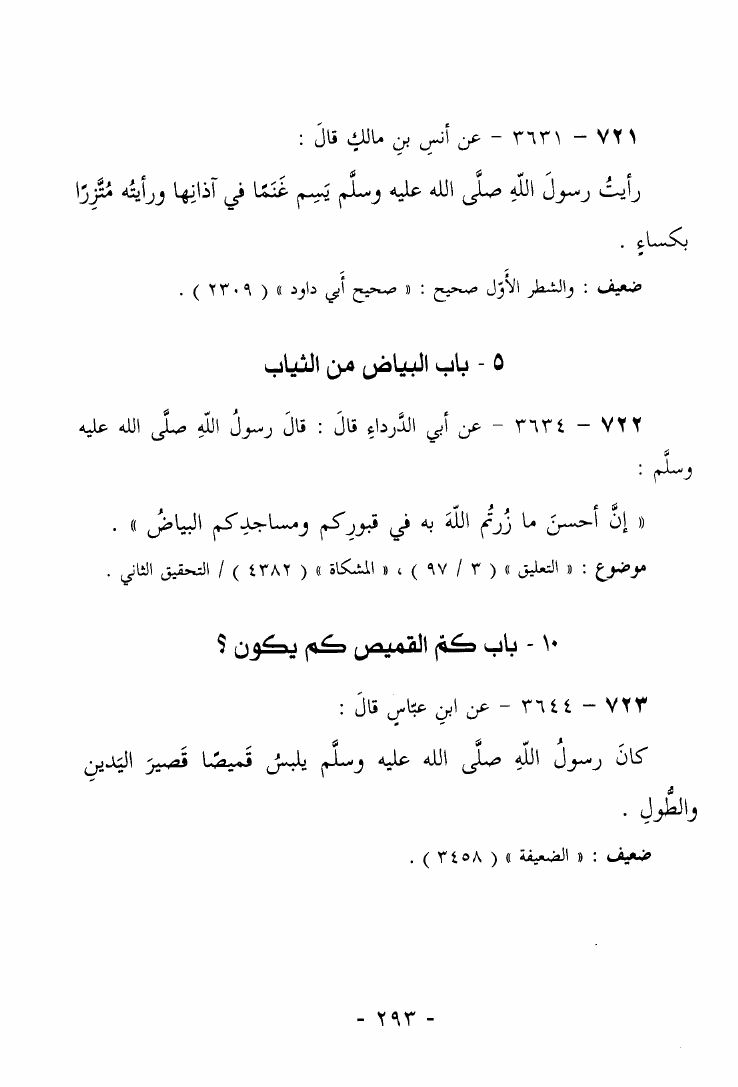 ٧٢١ – ٣٦٣١ – عن أنسِ بنِ مالكٍ قالَ :
رأيتُ رسولَ اللّهِ صلَّى الله عليه وسلَّم يَسِم غَنَمًا في آذانِها ورأيتُه مُتَّزِرًا
بكساءٍ .
ضعيف : والشطر الأَوّل صحيح : « صحيح أَبي داود » ( ٢٣٠٩ ) .
٥ - باب البياض من الثياب
٧٢٢ – ٣٦٣٤ – عن أبي الدَّرداءِ قالَ : قالَ رسولُ اللّهِ صلَّى الله عليه
وسلَّم :
« إنَّ أحسنَ ما زُرتُم اللّهَ به في قبورِكم ومساجدِكم البياضُ » .
موضوع : « التعليق » ( ٣ / ٩٧ ) ، « المشكاة » ( ٤٣٨٢ ) / التحقيق الثاني .
١٠ - باب كم القميص كم يكون ؟
٧٢٣ – ٣٦٤٤ – عن ابنِ عبّاسٍ قالَ :
كانَ رسولُ اللّهِ صلَّى الله عليه وسلَّم يلبسُ قَميصًا قَصيرَ اليَدينِ
والطُّولِ .
ضعيف : « الضعيفة » ( ٣٤٥٨ ) .
- ٢٩٣ -